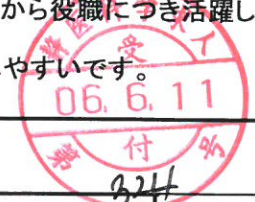 から役職につき活躍し
やすいです。
受
06.6.11
付
第 号
324